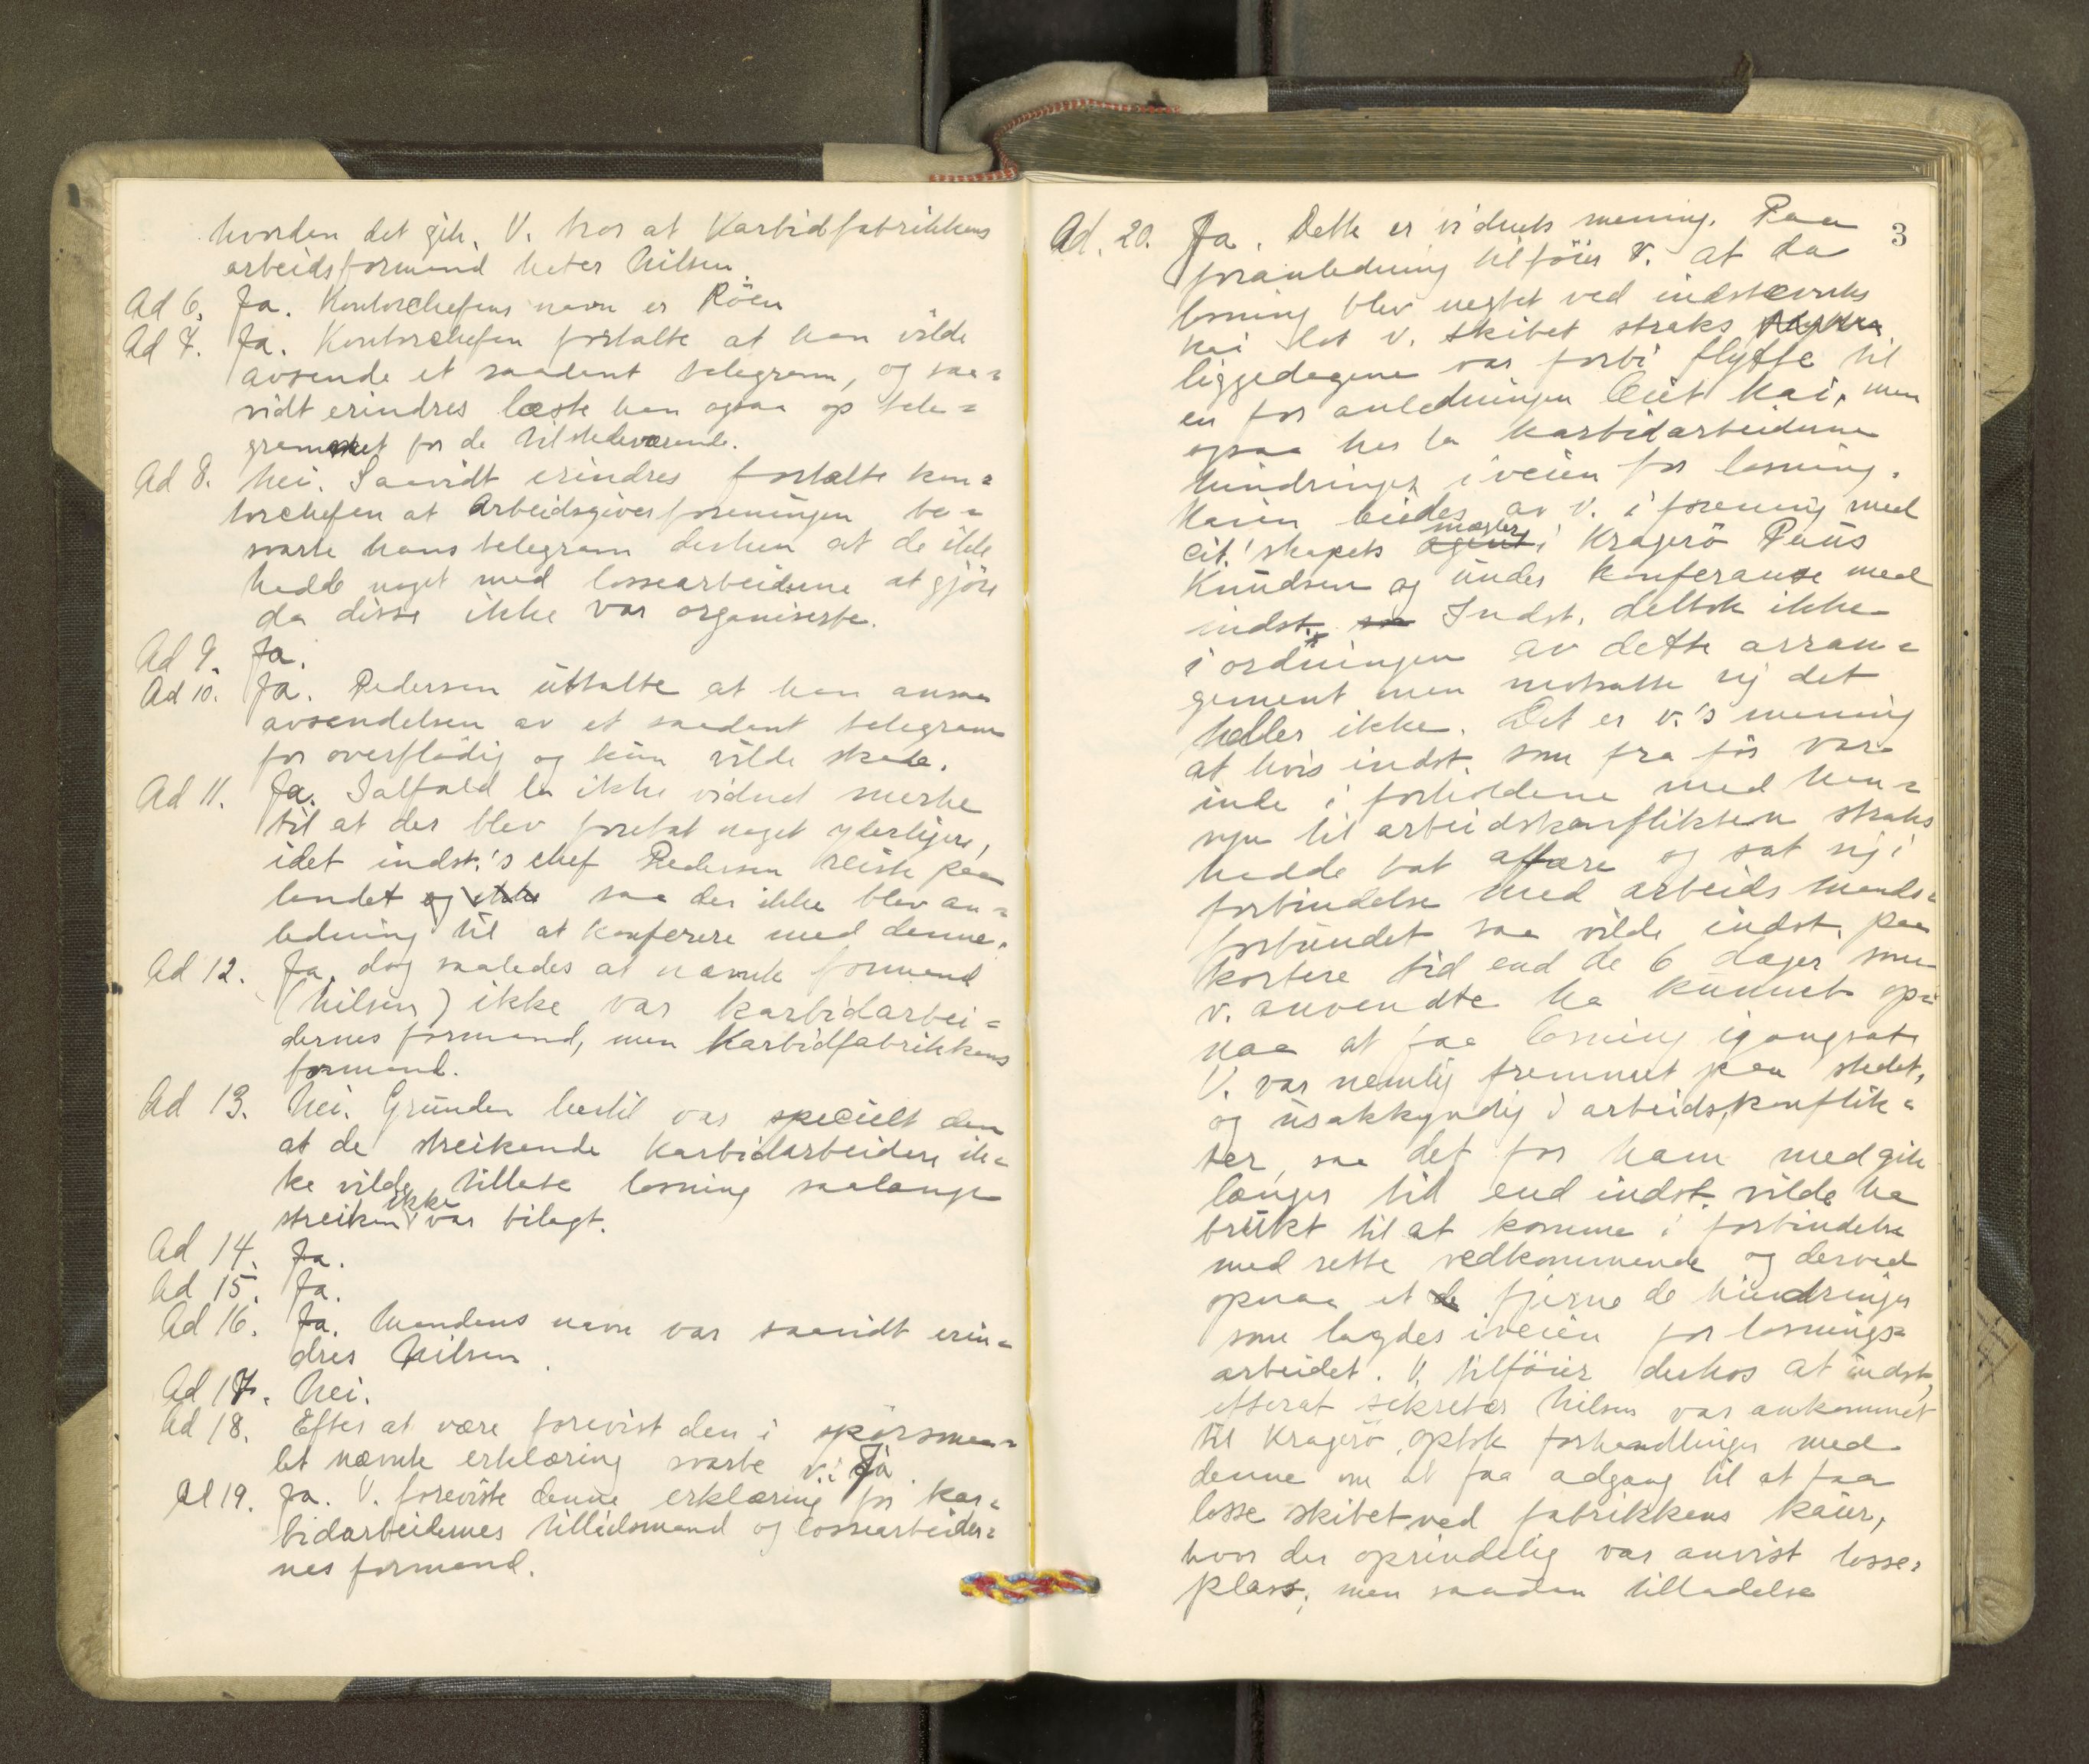 hvorden det gik. V. tror at Karbidfabrikkens
arbeidsformand heter Nilsen.
Ad 6. Ja. Kontorchefens navn er Röen
Ad 7. Ja. Kontorchefen fortalte at han vilde
avsende et saadant telegram, og saa=
vidt erindres læste han ogsaa op tele=
grammet for de tilstedeværende.
Ad 8. Nei. Saavidt erindres fortalte kon=
torchefen at Arbeidsgiverforeningen be=
svarte hans telegram derhen at de ikke
hadde noget med lossearbeiderne at gjöre
da disse ikke var organiserte.
Ad 9. Ja.
Ad 10. Ja. Pedersen uttalte at han ansaa
avsendelsen av et saadant telegram
for overflödig og kun vilde skade.
Ad 11. Ja. Ialfald la ikke vidnet merke
til at der blev foretat noget yderligere,
idet indst.'s chef Pedersen reiste paa
landet og ikke saa der ikke blev an=
ledning til at konferere med denne.
Ad 12. Ja, dog saaledes at nævnte formand
(Nilsen) ikke var karbidarbei=
dernes formand, men Karbidfabrikkens
formand.
Ad 13. Nei. Grunden hertil var specielt den
at de streikende Karbidarbeidere ik=
ke vilde tillate losning saalænge
streiken ikke var bilagt.
Ad 14. Ja.
Ad 15. Ja.
Ad 16. Ja. Mandens navn var saavidt erin=
dres Nilsen.
Ad 17. Nei.
Ad 18. Efter at være forevist den i spörsmaa=
let nævnte erklæring svarte v.: Ja.
Ad 19. Ja. V. foreviste denne erklæring for kar=
bidarbeidernes tillidsmand og lossearbeider=
nes formand.
3
Ad. 20. Ja. Dette er vidnets mening. Paa
foranledning tilföier v. at da
losning blev negtet ved indstevntes
kai lot v. skibet straks
liggedagene var forbi flytte til
en for anledningen leiet kai, men
ogsaa her la karbidarbeiderne
hindringer iveien for losning.
Kaien leiedes av v. i forening med
cit.'skapets agent mægler i Kragerö Paus
Knudsen og under konferanse med
indst. Indst. deltok ikke
i ordningen av dette arran=
gement men motsatte sig det
heller ikke. Det er v.'s mening
at hvis indst. som fra för var
inde i forholdene med hen=
syn til arbeidskonflikten straks
hadde tat affære og sat sig i
forbindelse med arbeidsmands=
forbundet saa vilde indst. paa
kortere tid end de 6 dager som
v. anvendte ha kunnet op=
naa at faa losning igangsat.
V. var nemlig fremmet paa stedet,
og usakkyndig i arbeidskonflik=
ter, saa det for ham medgik
længer tid end indst. vilde ha
brukt til at komme i forbindelse
med rette vedkommende og derved
opnaa at de fjerne de hindringer
som lagdes iveien for losnings=
arbeidet. V. tilföier derhos at indst,
efterat sekretær Nilsen var ankommet
til Kragerö, optok forhandlinger med
denne om at faa adgang til at faa
losse skibet ved fabrikkens kaier,
hvor der oprindelig var anvist losse=
plass, men saadan tilladelse